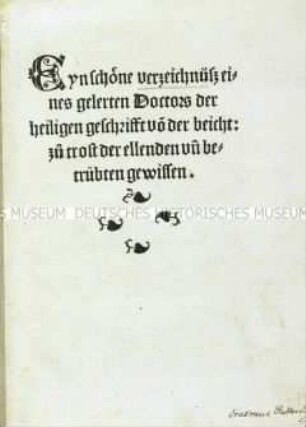 Eyn schoͤne verzeichnüsz ei-
nes gelerten Doctors der
heiligen geschrifft võ der beicht:
zuͦ trost der ellenden vñ be-
trübten gewissen.
MUSEUM DEUTSCHES HISTORISCHES MUSEUM